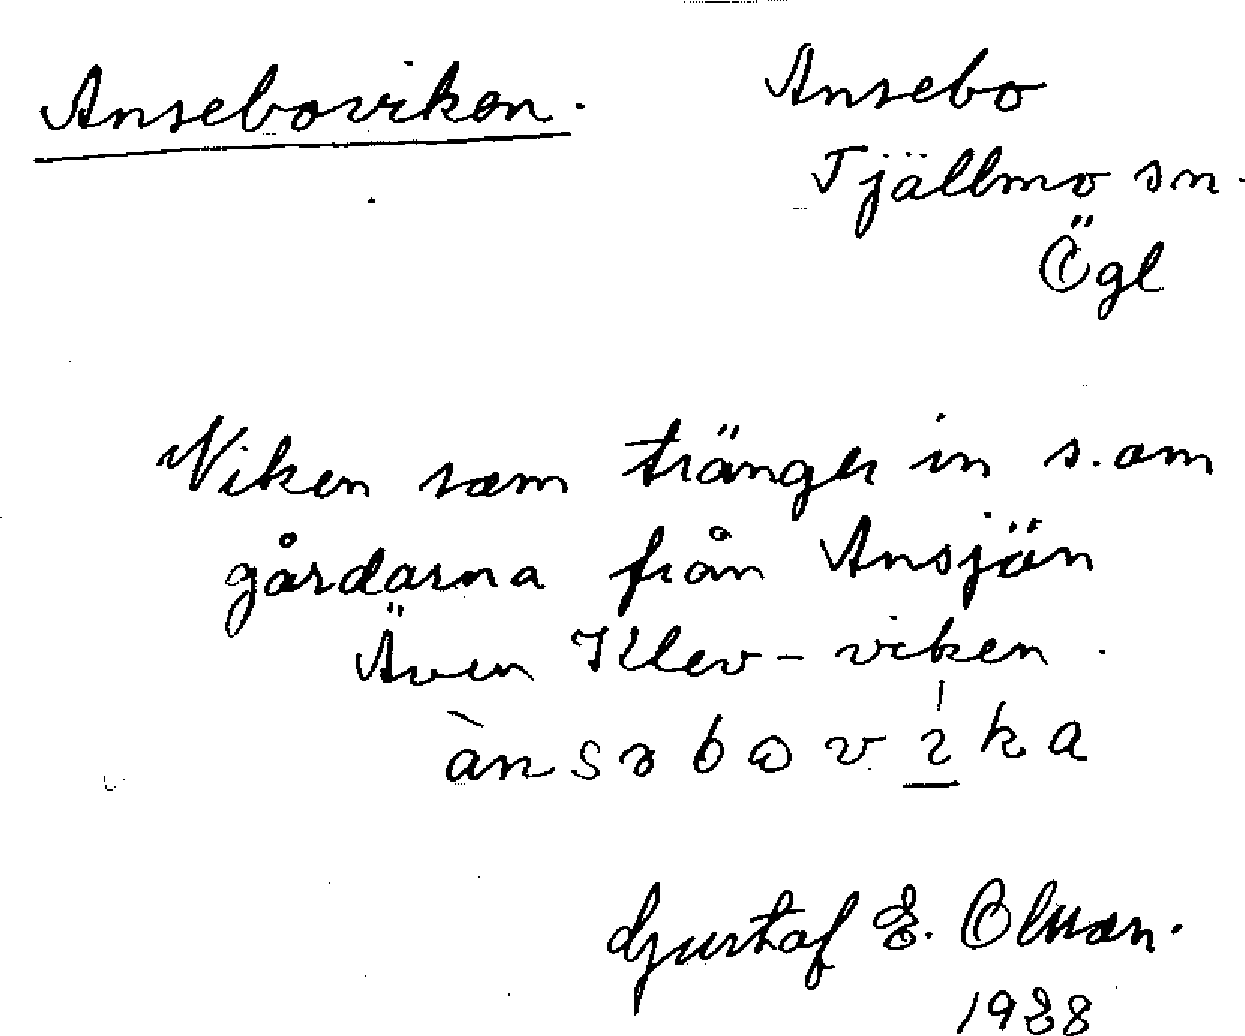 Anseboviken.
Ansebo
Tjällmo sn.
Ögl
Viken som tränger in s. om
gårdarna från Ansjön
Även Klev-viken.
ànsəbωvika
Gustaf E. Olsson.
1938